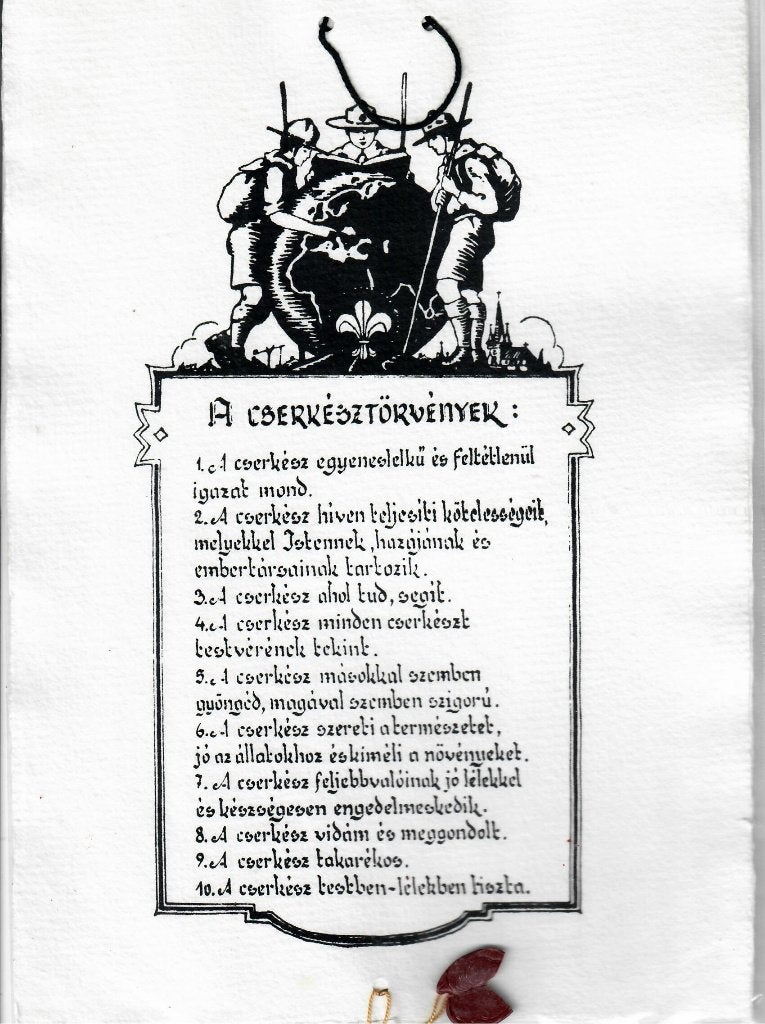 A CSERKÉSZTÖRVÉNYEK:
1. A cserkész egyeneslelkű és feltétlenül
igazat mond.
2. A cserkész híven teljesíti kötelességeit,
melyekkel Istennek, hazájának és
embertársainak tartozik.
3. A cserkész ahol tud, segít.
4. A cserkész minden cserkészt
testvérének tekint.
5. A cserkész másokkal szemben
gyöngéd, magával szemben szigorú.
6. A cserkész szereti a természetet,
jó az állatokhoz és kíméli a növényeket.
7. A cserkész feljebbvalóinak jó lélekkel
és készségesen engedelmeskedik.
8. A cserkész vidám és meggondolt.
9. A cserkész takarékos.
10. A cserkész testben-lélekben tiszta.